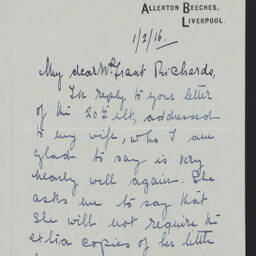 ALLERTON BEECHES,
LIVERPOOL.
1/2/16.
My dear Mr. Grant Richards,
In reply to your letter
of the 20th ult, addressed
to my wife, who I am
glad to say is very
nearly well again. She
asks me to say that
she will not require the
extra copies of her little